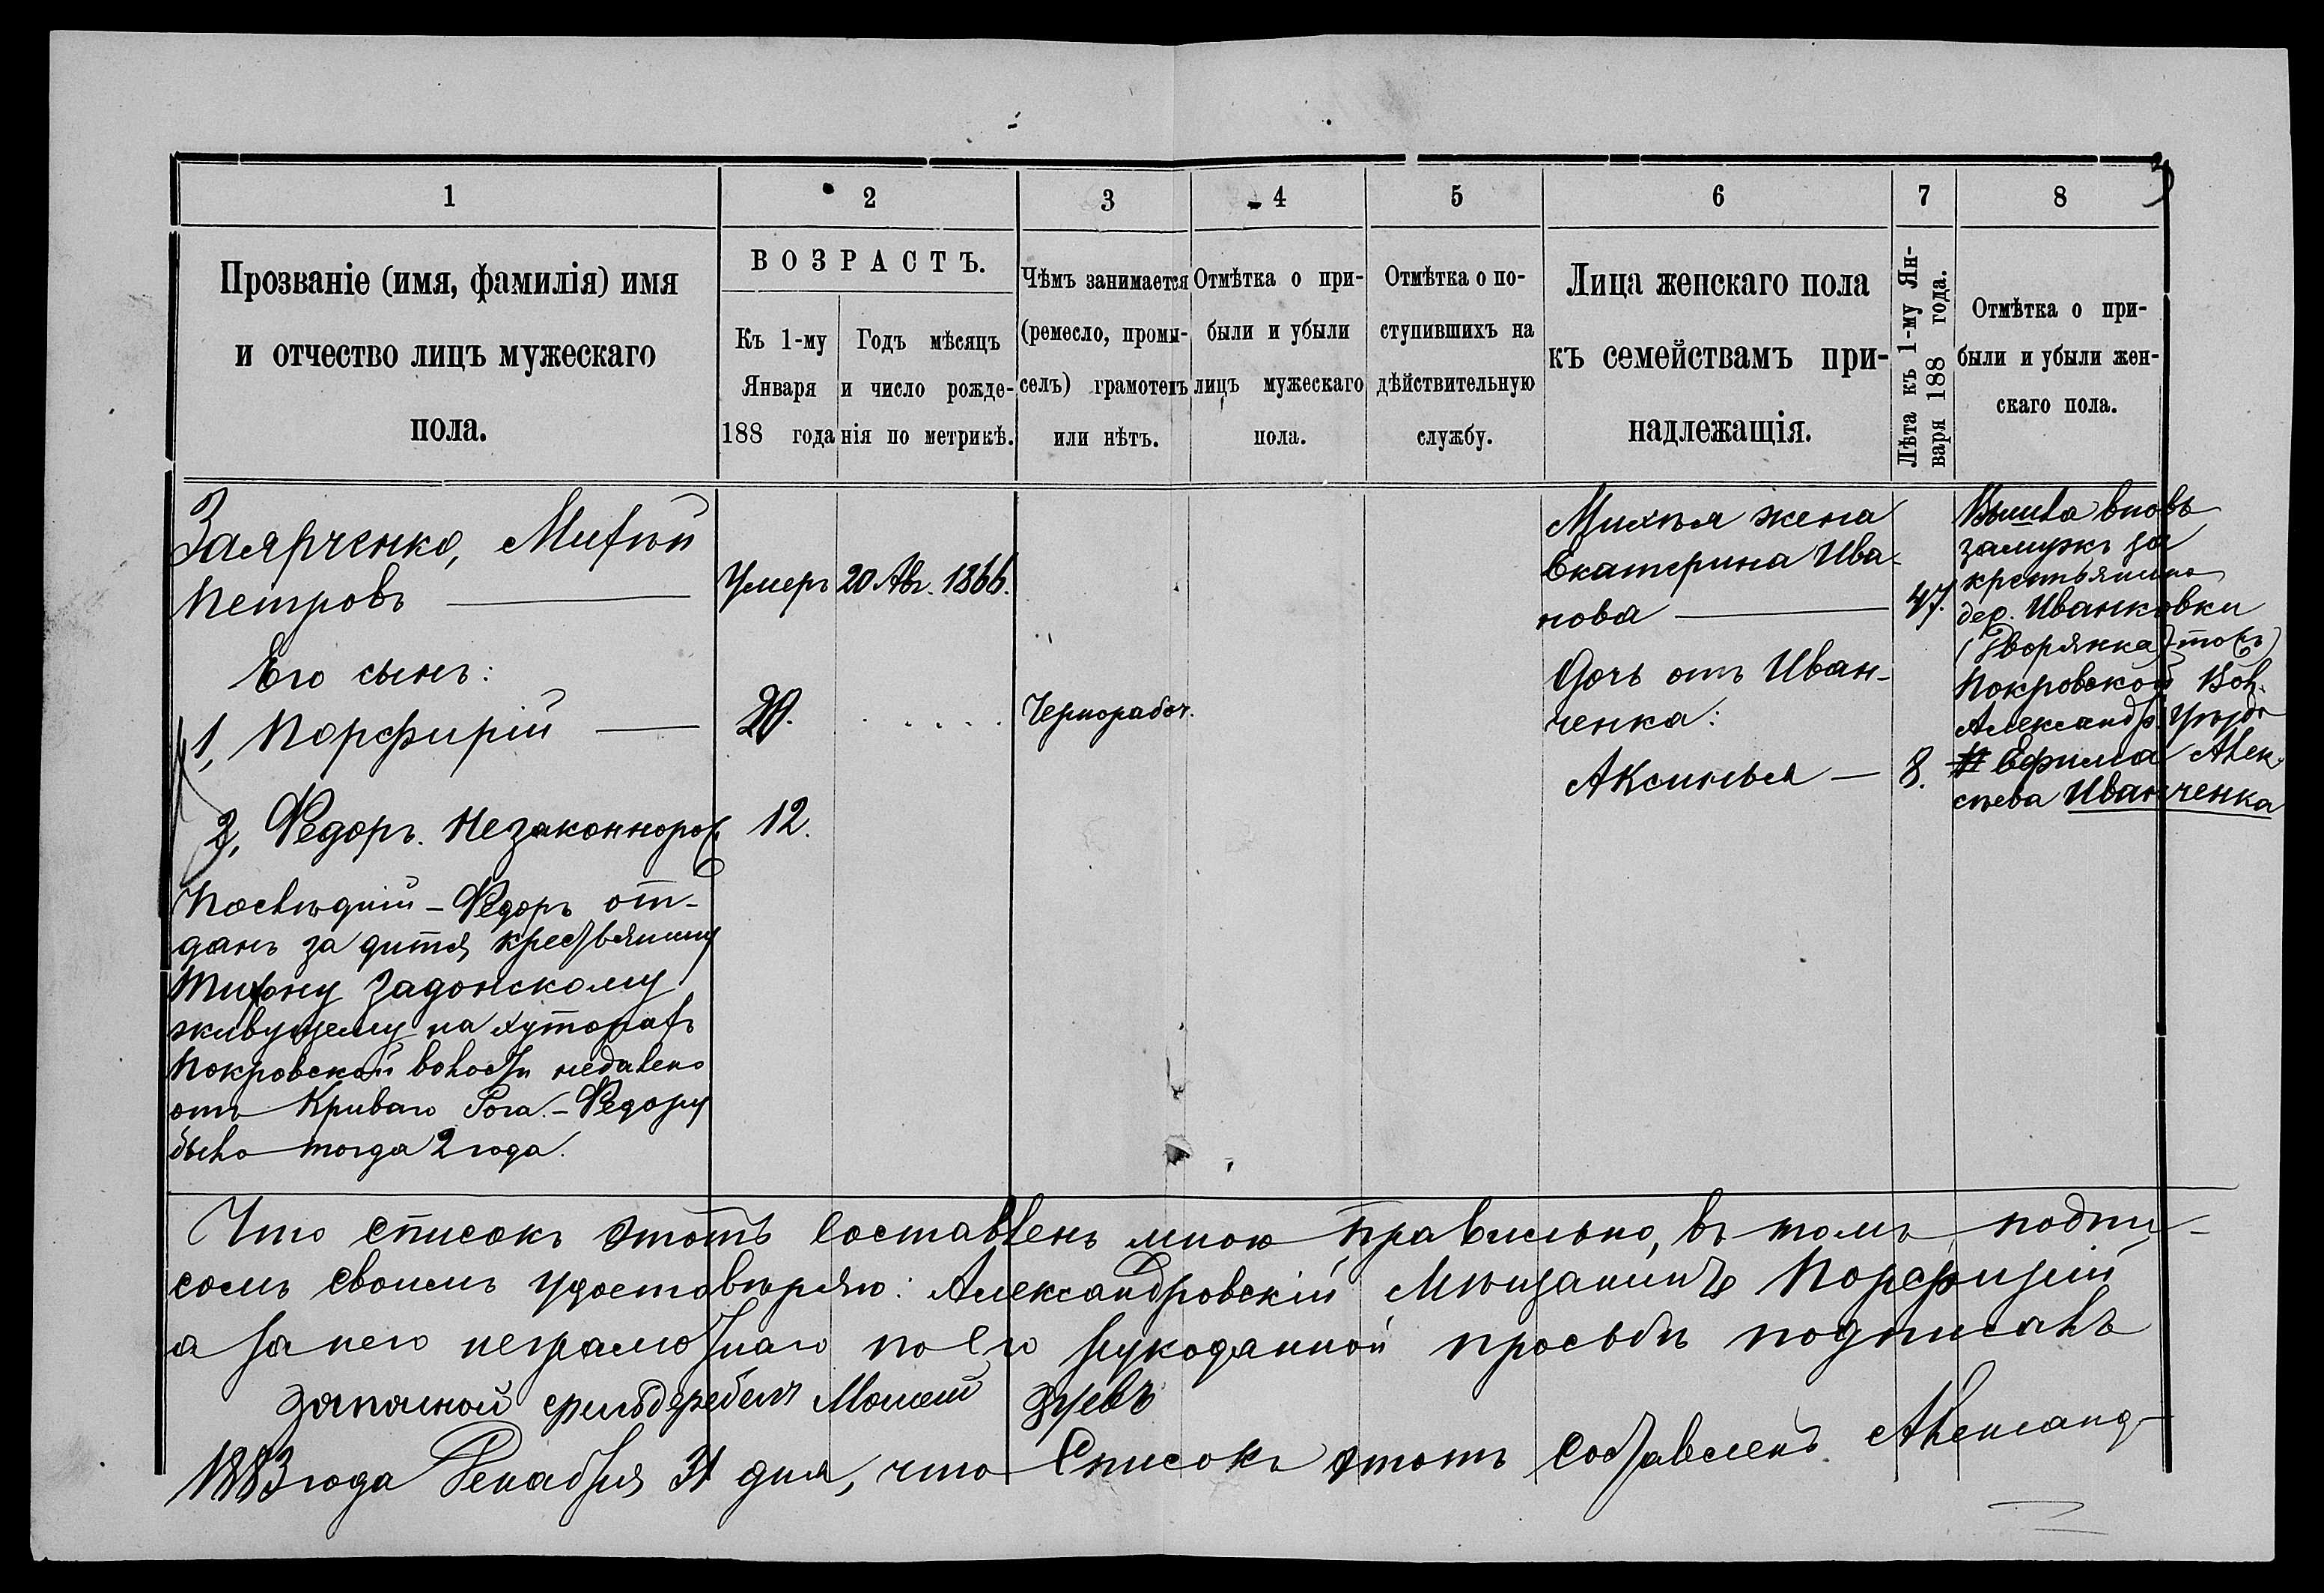 1
2
3
4
5
6
7
8
Прозваніе (имя, фамилія) имя
и отчество лицъ мужескаго
пола.
ВОЗРАСТЪ.
Къ 1-му
Января
188 года
Годъ мѣсяцъ
и число рожде-
нія по метрикѣ.
Чѣмъ занимается
(ремесло, промы-
селъ) грамотенъ
или нѣтъ.
Отмѣтка о при-
были и убыли
лицъ мужескаго
пола.
Отмѣтка о по-
ступившихъ на
дѣйствительную
службу.
Лица женскаго пола
къ семействамъ при-
надлежащія.
Лѣта къ 1-му Ян-
варя 188 года.
Отмѣтка о при-
были и убыли жен-
скаго пола.
Заярченко, Михѣй
Петровъ
Умеръ 20 Авг. 1866.
Его сынъ:
1, Порфирій
Чернорабоч.
2, Ѳедоръ. Незаконнорож.
12.
Послѣдній - Ѳедоръ от-
данъ за дитя крестьянину
Тихону Задонскому
живущему на хуторахъ
Покровской волости недалеко
отъ Криваго Рога. - Ѳедору
было тогда 2 года.
Михѣя жена
Екатерина Ива-
нова
47.
Дочь отъ Иван-
ченка:
Аксинья
8.
Вышла вновь
замужъ за
крестьянина
дер. Иванковки
(Дворянка тожъ)
Покровской Вол.
Александр. Уѣзда
Ефима Алек-
сѣева Иванченка
Что списокъ этотъ составленъ мною правильно, въ томъ подпи-
сомъ своимъ удостовѣряю: Александровскій Мѣщанинъ Порфирій
а за него неграмотнаго по его рукоданной просьбѣ подписалъ
запасной Моисей Зуевъ
1883 года Декабря 31 дня, что Списокъ этотъ составленъ Александ-